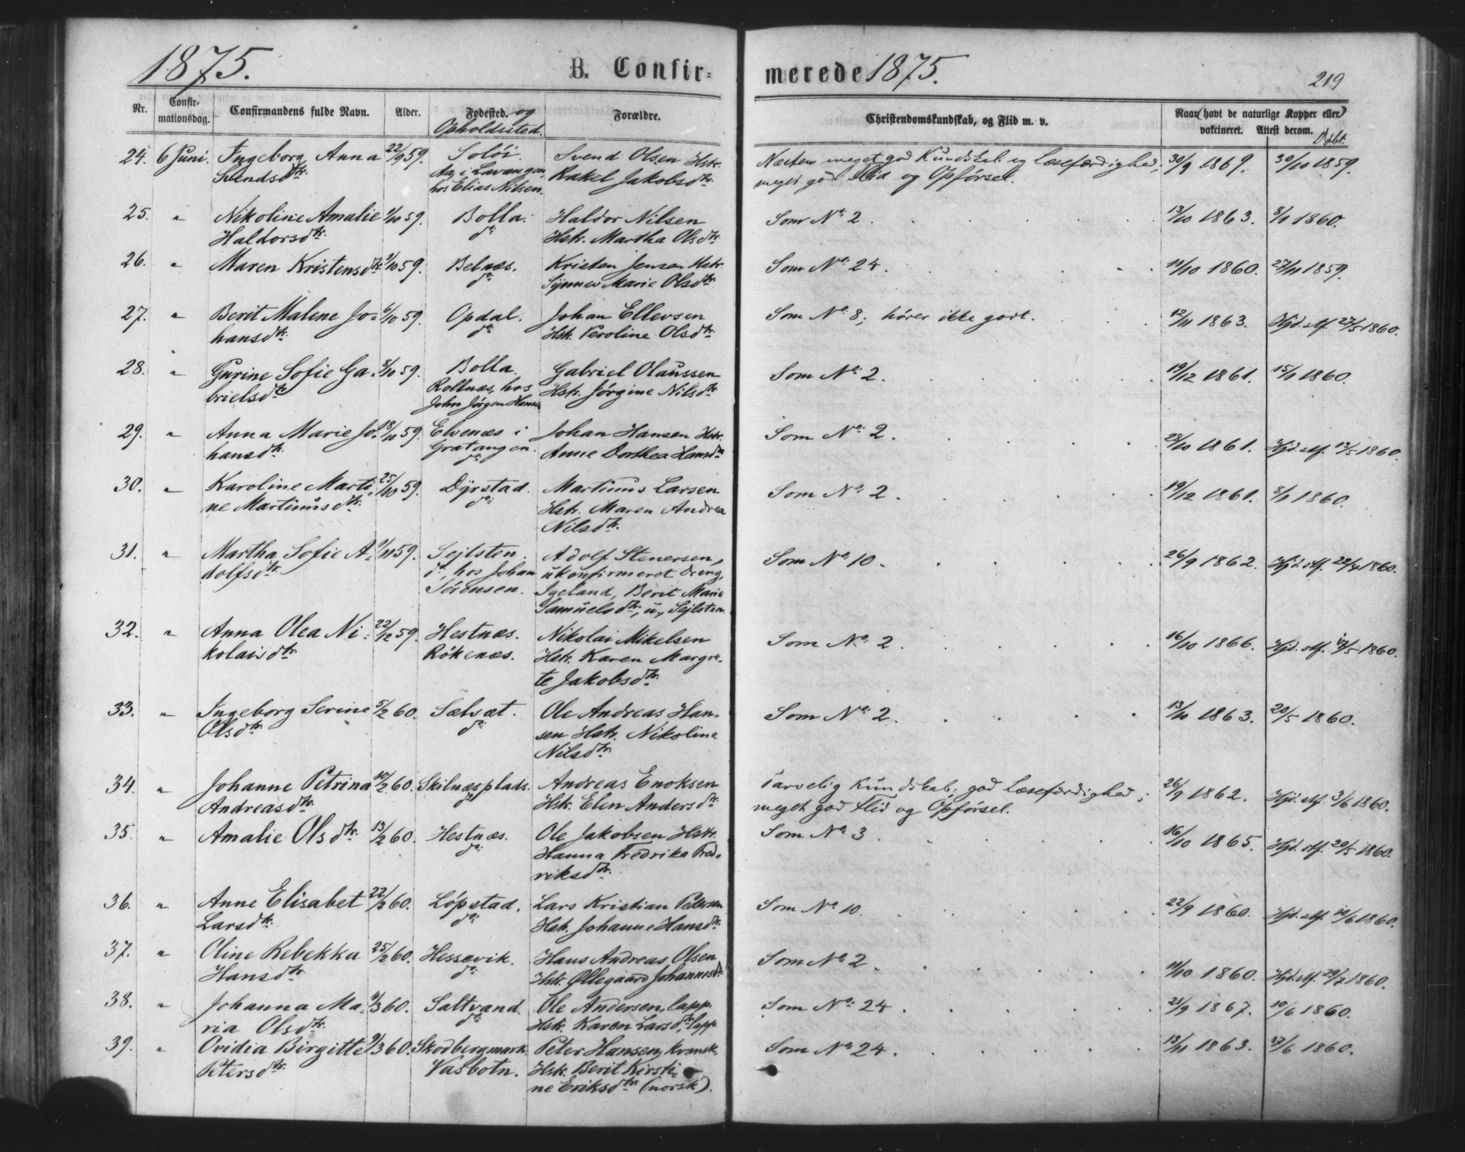 1875.
B. Confir-
merede 1875.
219
Nr.
Confir-
mationsdag.
Confirmandens fulde Navn.
Alder.
Fødested. og
Opholdssted.
Forældre.
Christendomskundskab, og Flid m. v.
Naar (havt de naturlige Kopper eller)
vakcineret. Attest derom.
Døbt.
24. 6 Juni. Ingeborg Anna 22/9 59. Soløi. Svend Olsen Hstr. Næsten meget god Kundskab og Læsefærdighed; 30/9 1869. 30/10 1859.
Svendsdtr. i Lavangen, Rakel Jakobsdtr. meget god Flid og Opførsel.
hos Elias Nilsen
25. " Nikoline Amalie 1/10 59. Bolla. Haldor Nilsen Som No. 2. 13/10 1863. 8/1 1860.
Haldorsdtr. do. Hstr. Martha Olsdtr.
26. " Maren Kristensdtr. 3/10 59. Belnæs. Kristen Jensen Hstr. Som No. 24. 11/10 1860. 27/11 1859.
do. Synnev Marie Olsdtr.
27. " Berit Malene Jo- 6/10 59. Opdal. Johan Ellevsen Som No. 8; hører ikke godt. 12/11 1863. Hjd. stf. 27/5 1860.
hansdtr. do. Hstr. Peroline Olsdtr.
28. " Gurine Sofie Ga- 8/10 59. Bolla. Gabriel Olaussen Som No. 2. 19/12 1861. 15/1 1860.
brielsdtr. Rollnæs, hos Hstr. Jørgine Nilsdtr.
John Jørgen Hansen
29. " Anna Marie Jo- 18/10 59. Elvenæs i Johan Hansen Hstr. Som No. 2. 28/10 1861. Hjd. stf. 13/5 1860.
hansdtr. Gratangen. Anne Dorthea Hansdtr.
do.
30. " Karoline Marti- 25/10 59. Dyrstad. Martinus Larsen Som No. 2. 19/12 1861. 8/1 1860.
ne Martinusdtr. do. Hstr. Maren Andrea
Nilsdtr.
31. " Martha Sofie A- 1/11 59. Sejlsten. Adolf Stenersen, Som No. 10. 26/9 1862. Hjd. stf. 1860.
dolfsdtr. do., hos Johan ukonfirmeret Dreng,
Sørensen. Igeland, Berit Marie
Samuelsdtr., u, Sejlsten
32. " Anna Olea Ni- 22/12 59. Hestnæs. Nikolai Mikelsen Som No. 2. 16/10 1866. Hjd. stf. 1860.
kolaisdtr. Rökenæs. Hstr. Karen Margre-
te Jakobsdtr.
33. " Ingeborg Serine 5/2 60. Sætvæt. Ole Andreas Han- Som No. 2. 13/10 1863. 20/5 1860.
Olsdtr. do. sen Hstr. Nikoline
Nilsdtr.
34. " Johanne Petrina 10/2 60. Skilnæsplads. Andreas Enoksen Tarvelig Kundskab; god Læsefærdighed; 26/9 1862. Hjd. stf. 3/6 1860.
Andreasdtr. do. Hstr. Elen Andersdtr. meget god Flid og Opførsel.
35. " Amalie Olsdtr. 13/2 60. Hestnæs. Ole Jakobsen Hstr. Som No. 3. 16/10 1865. Hjd. stf. 1860.
do. Hanna Fredrika Fred-
riksdtr.
36. " Anne Elisabet 22/2 60. Löpstad. Lars Kristian Petersen Som No. 10. 22/9 1860. Hjd. stf. 1860.
Larsdtr. do. Hstr. Johanne Hansdtr.
37. " Oline Rebekka 25/2 60. Hessevik. Hans Andreas Olsen Som No. 2. 11/10 1860. Hjd. stf. 1860.
Hansdtr. do. Hstr. Øllegaard Johannesdtr.
38. " Johanna Ma- 9/3 60. Saltvand. Ole Andersen, lapp. Som No. 24. 21/9 1867. 10/6 1860.
ria Olsdtr. do. Hstr. Karen Larsdtr. lapp
39. " Ovidia Birgitte 9/3 60. Skodbergmark. Peter Hansen, kvensk Som No. 24. 13/11 1863. 17/6 1860.
Petersdtr. Vasbotn. Hstr. Berit Kirsti-
ne Eriksdtr. (norsk).